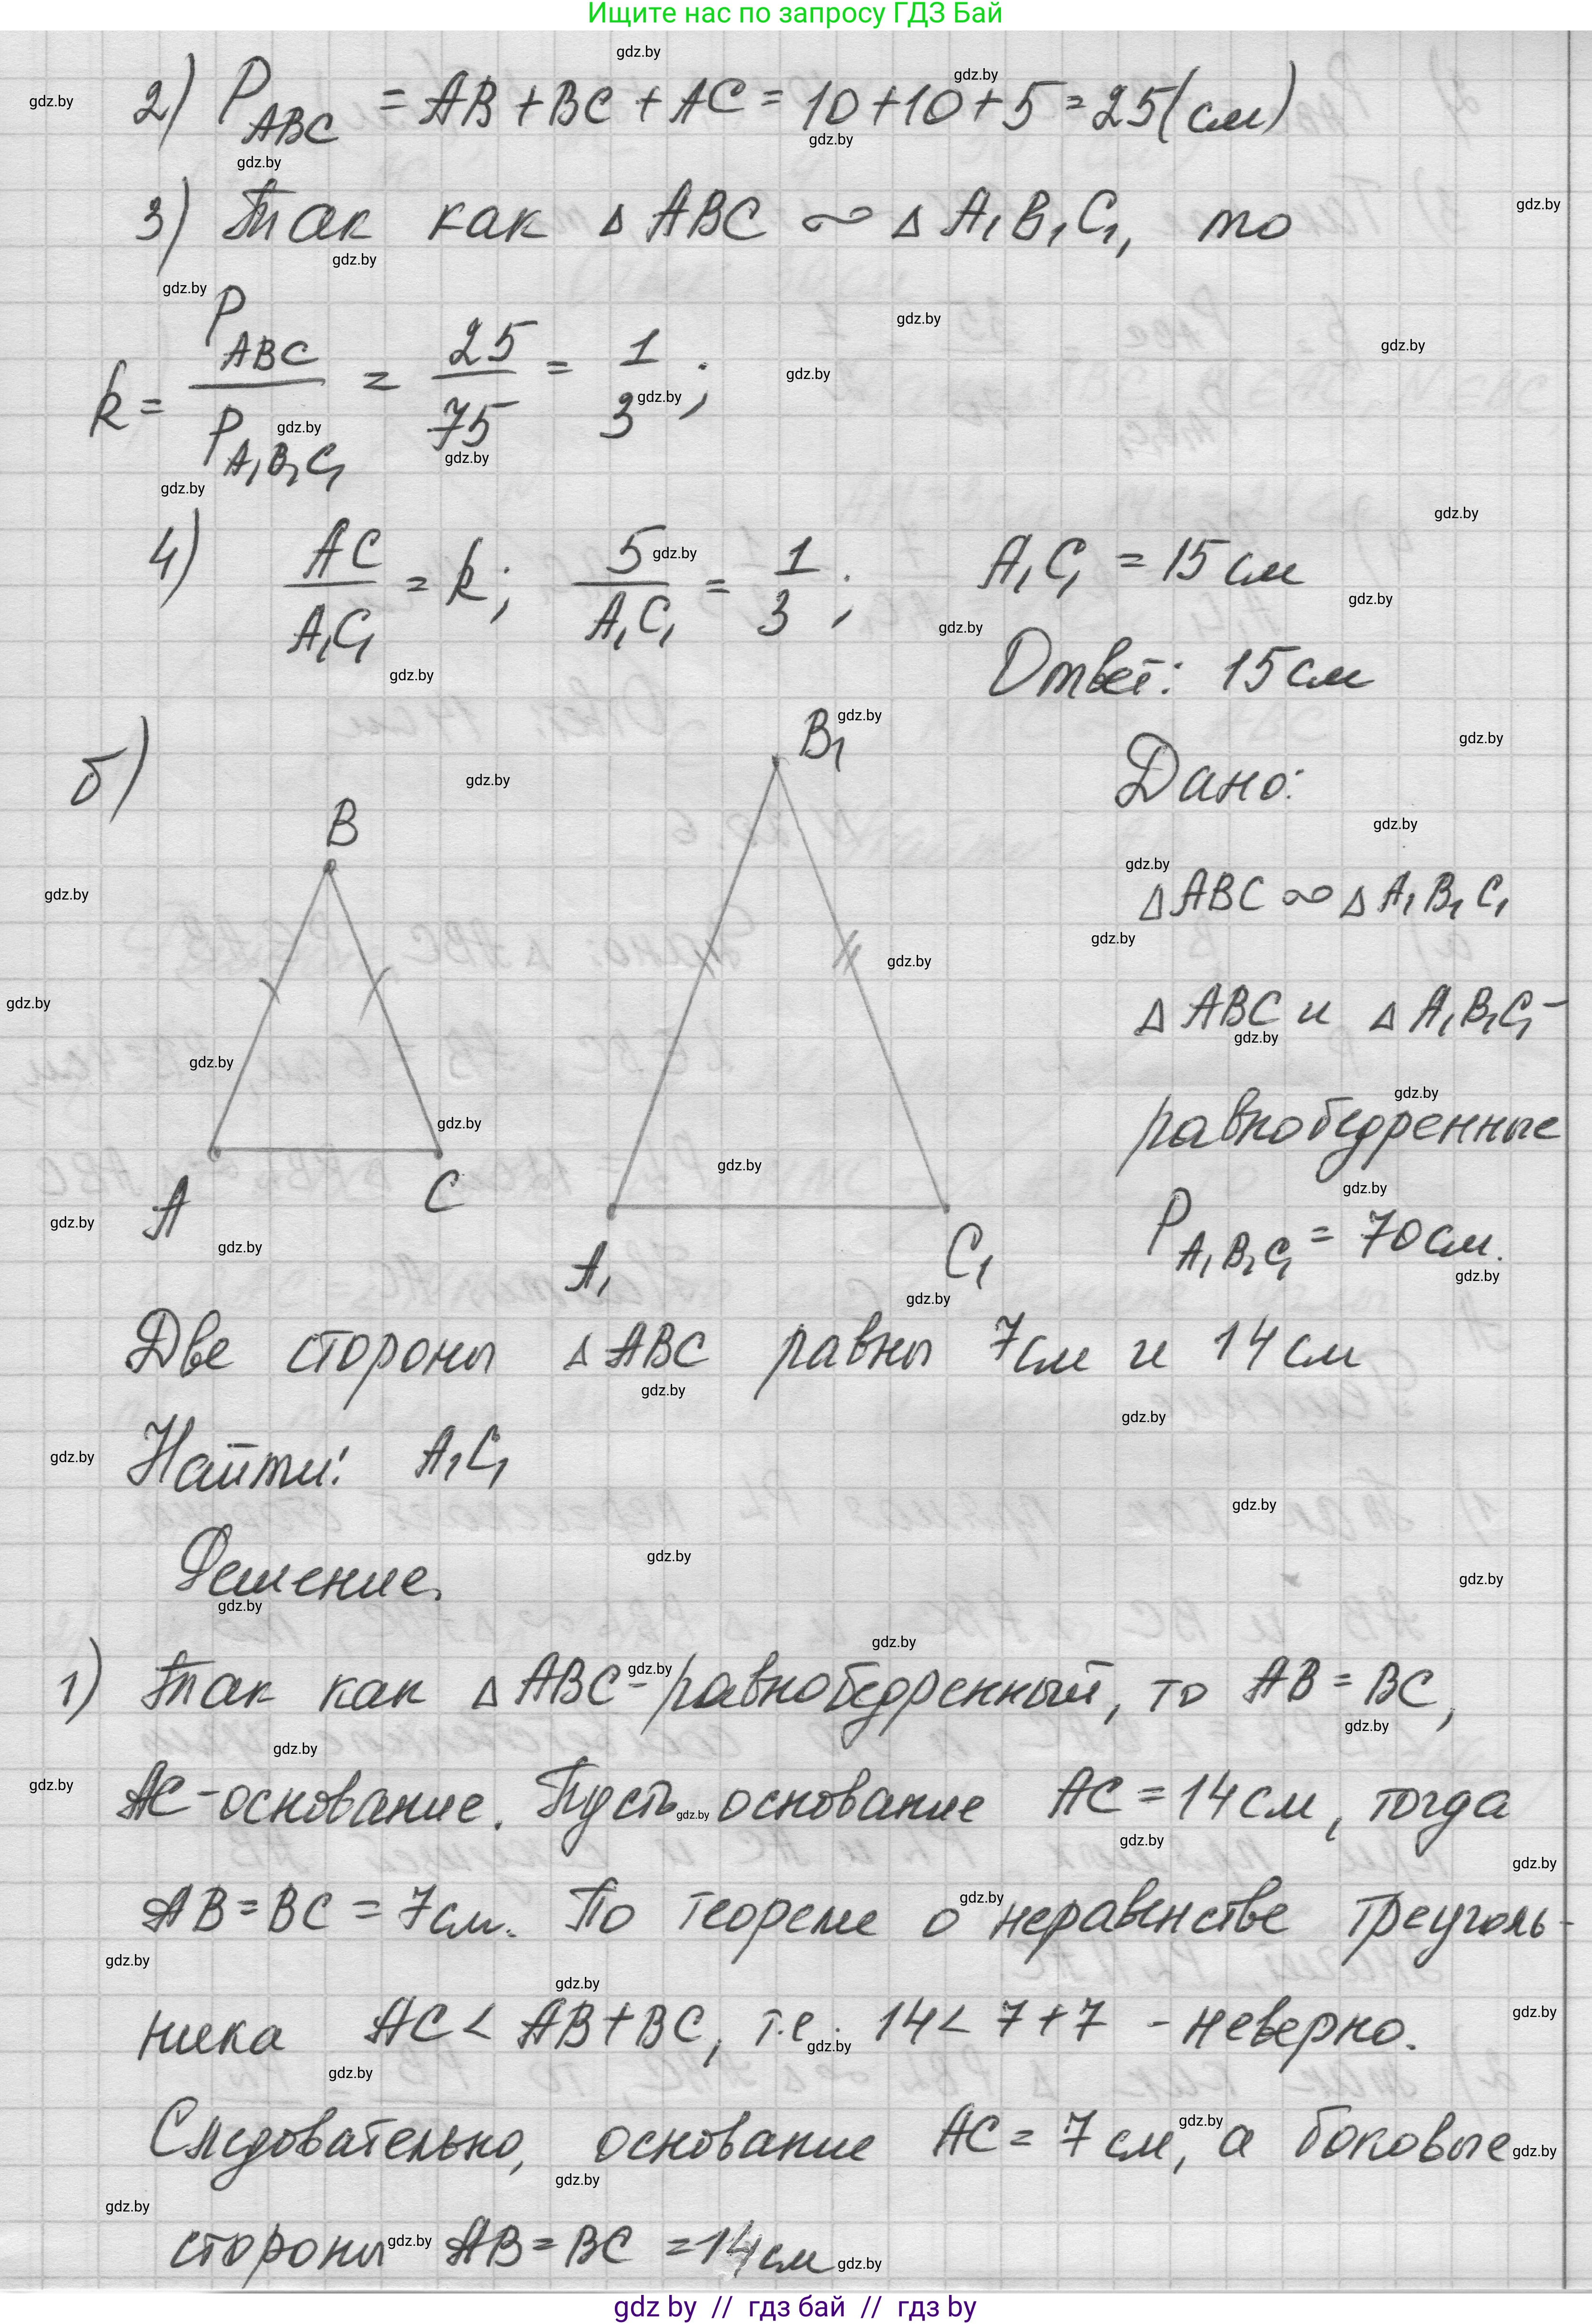 Ищите нас по запросу ГДЗ Бай
2) P ABC = AB + BC + AC = 10 + 10 + 5 = 25 (см)
3) Так как Δ ABC ∞ Δ A₁B₁C₁, то
k = P ABC / P A₁B₁C₁ = 25/75 = 1/3;
4) AC/A₁C₁ = k; 5/A₁C₁ = 1/3; A₁C₁ = 15 см
Ответ: 15 см
б)
B
B₁
A
C
A₁
C₁
Дано:
Δ ABC ∞ Δ A₁B₁C₁
Δ ABC и Δ A₁B₁C₁ -
равнобедренные
P A₁B₁C₁ = 70 см.
Две стороны Δ ABC равны 7 см и 14 см
Найти: A₁C₁
Решение.
1) Так как Δ ABC - равнобедренный, то AB = BC,
AC - основание. Пусть основание AC = 14 см, тогда
AB = BC = 7 см. По теореме о неравенстве треуголь-
ника AC < AB + BC, т.е. 14 < 7 + 7 - неверно.
Следовательно, основание AC = 7 см, а боковые
стороны AB = BC = 14 см
gdz by // гдз бай // гдз by